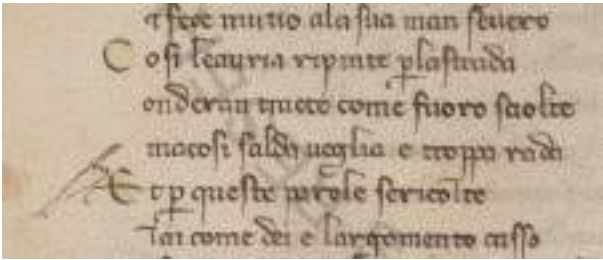 ⁊ fece mutio ala sua man seuero
Cosi lauria ripinte p̲ la strada
onderan tracte come fuoro sciolte
ma cosi salda uoglia e troppa rada
Et p̲ queste parole se ricolte
lai come dei e largomento casso